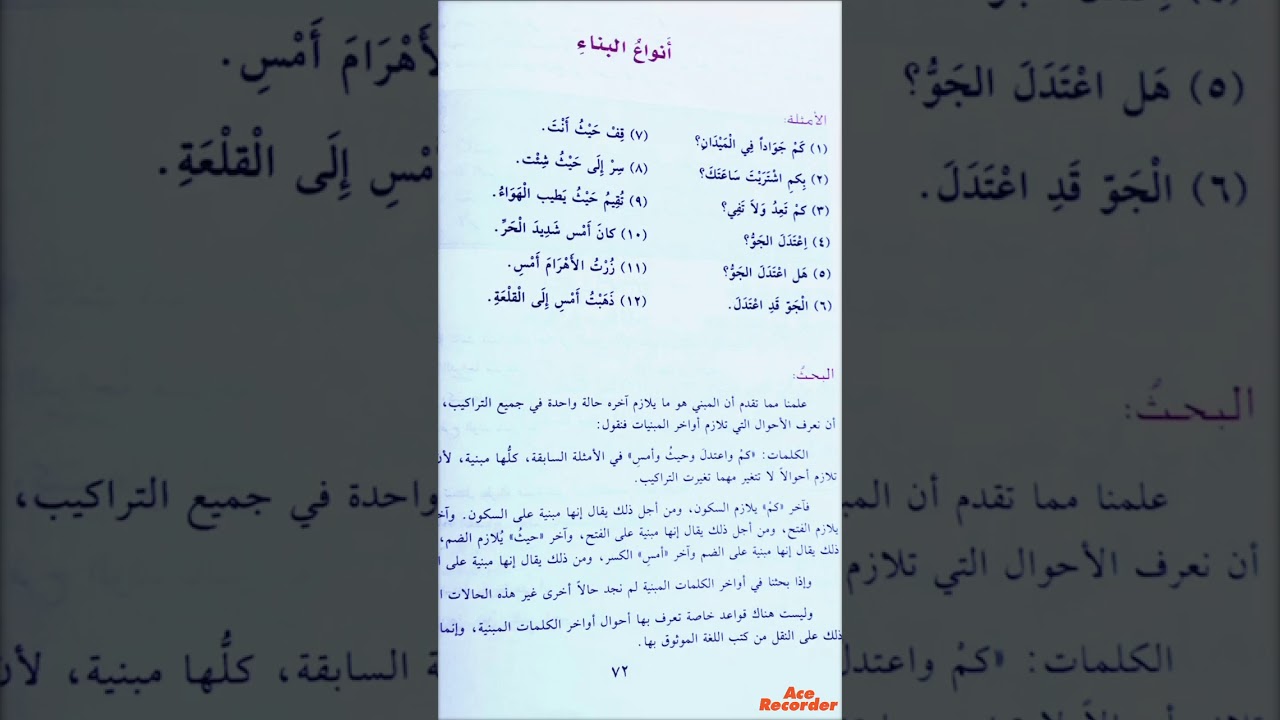 أَنواعُ البناءِ
الأمثلة:
(١) كَمْ جَوَاداً فِي الْمَيْدَانِ؟
(٢) بِكمِ اشْتَرَيْتَ سَاعَتَكَ؟
(٣) كمْ تَعِدُ وَلاَ تَفِي؟
(٤) اِعْتَدَلَ الجَوُّ؟
(٥) هَل اعْتَدَلَ الجَوُّ؟
(٦) الْجَوّ قَدِ اعْتَدَلَ.
(٧) قِفْ حَيْثُ أَنْتَ.
(٨) سِرْ إِلَى حَيْثُ شِئْت.
(٩) نُقِيمُ حَيْثُ يَطيب الْهَوَاءُ.
(١٠) كانَ أَمْس شَدِيدَ الْحَرِّ.
(١١) زُرْتُ الأَهْرَامَ أَمْسِ.
(١٢) ذَهَبْتُ أَمْسِ إِلَى الْقلْعَةِ.
البحثُ:
علمنا مما تقدم أن المبني هو ما يلازم آخره حالة واحدة في جميع التراكيب،
أن نعرف الأحوال التي تلازم أواخر المبنيات فنقول:
الكلمات: «كمْ واعتدلَ وحيثُ وأمسِ» في الأمثلة السابقة، كلُّها مبنية، لأن
تلازم أحوالاً لا تتغير مهما تغيرت التراكيب.
فآخر «كمْ» يلازم السكون، ومن أجل ذلك يقال إنها مبنية على السكون. وآخ
يلازم الفتح، ومن أجل ذلك يقال إنها مبنية على الفتح، وآخر «حيثُ» يُلازم الضم،
ذلك يقال إنها مبنية على الضم وآخر «أمسِ» الكسر، ومن ذلك يقال إنها مبنية على ا
وإذا بحثنا في أواخر الكلمات المبنية لم نجد حالاً أخرى غير هذه الحالات ا
وليست هناك قواعد خاصة تعرف بها أحوال أواخر الكلمات المبنية، وإنما
ذلك على النقل من كتب اللغة الموثوق بها.
٧٢
Ace
Recorder